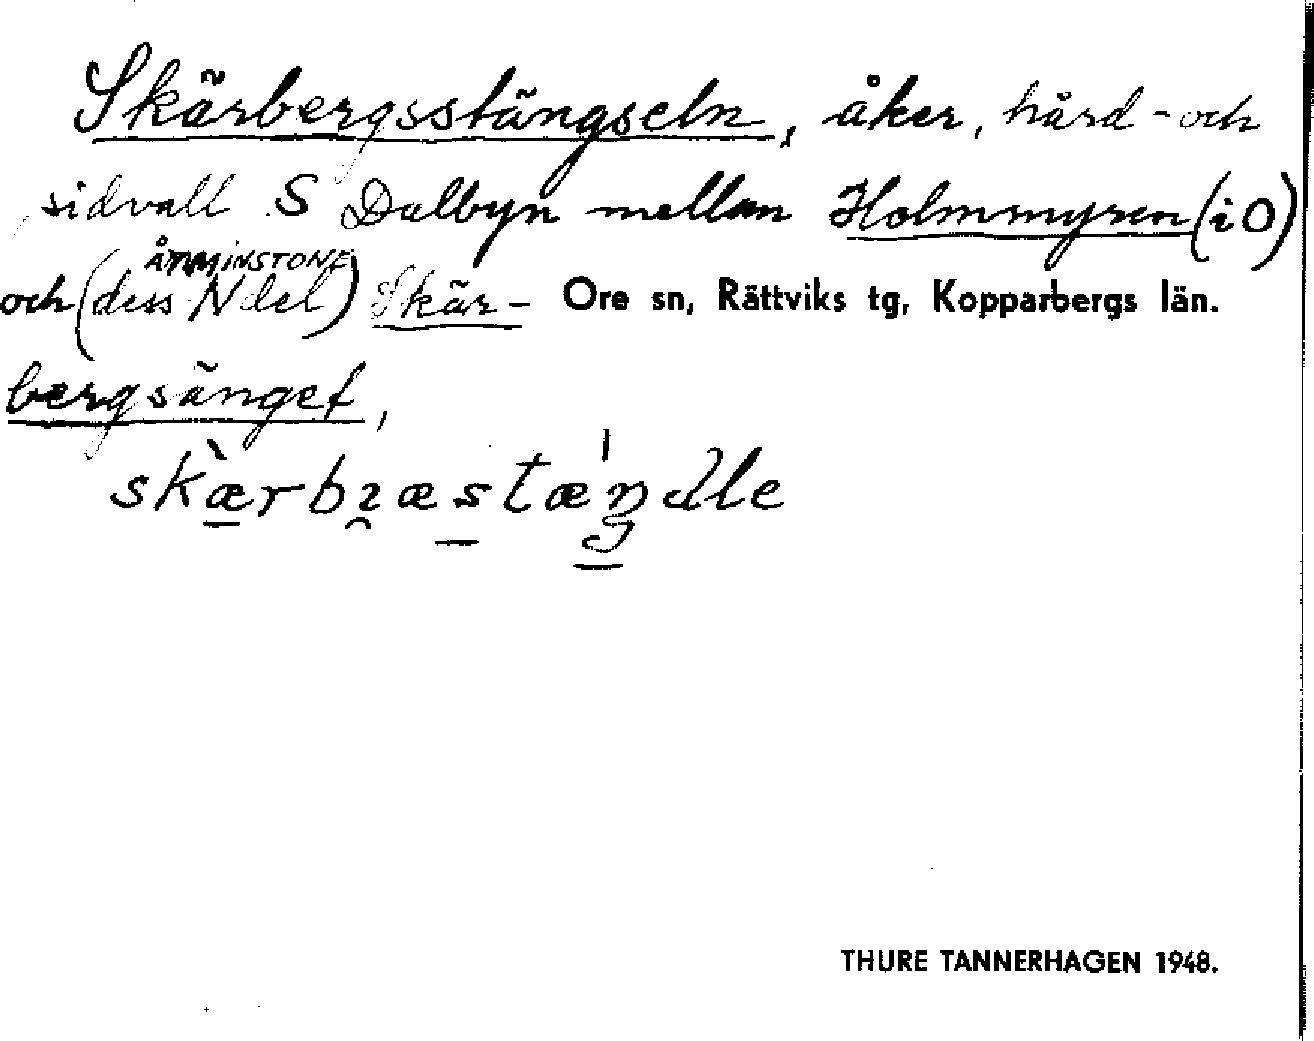 Skärbergsstängseln, åker, hård- och
sidvall S Dalbyn mellan Holmmyren (i O)
ÅTMINSTONE
och (dess N del) Skär- Ore sn, Rättviks tg, Kopparbergs län.
bergsänget,
skæ̀rbɿæstæ'ŋdle
THURE TANNERHAGEN 1948.